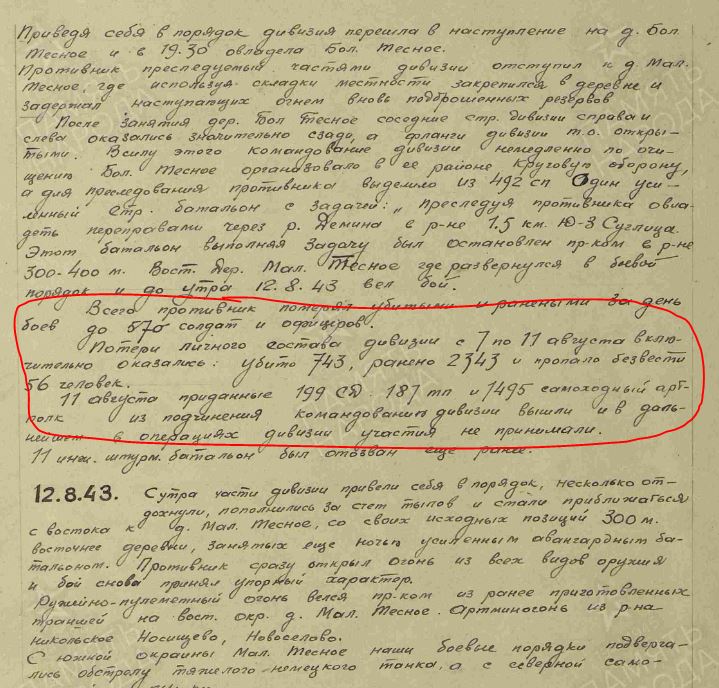 Приведя себя в порядок дивизия перешла в наступление на д. Бол
Тесное и в 19.30 овладела Бол. Тесное.
Противник преследуемый частями дивизии отступил к д. Мал.
Тесное, где используя складки местности закрепился в деревне и
задержал наступающих огнем вновь подброшенных резервов
После занятия дер. Бол Тесное соседние стр. дивизии справа и
слева оказались значительно сзади, а фланги дивизии т.о. откры-
тыми. Всилу этого командование дивизии немедленно по очи-
щению Бол. Тесное организовало в ее районе круговую оборону,
а для преследования противника выделило из 492 сп один уси-
ленный стр. батальон с задачей: „Преследуя противника овла-
деть переправами через р. Демина в р-не 1.5 км. Ю-З Суглица.
Этот батальон выполняя задачу был остановлен пр-ком в р-не
300-400 м. Вост. дер. Мал. Тесное где развернулся в боевой
порядок и до утра 12.8.43 вел бой.
Всего противник потерял убитыми и ранеными за день
боев до солдат и офицеров.
Потери личного состава дивизии с 7 по 11 августа вклю-
чительно оказались: убито 743, ранено 2343 и пропало безвести
56 человек.
11 августа приданные 199 СД. 187 тп и 1495 самоходный арт-
полк из подчинения командованию дивизии вышли и в даль-
нейшем в операциях дивизии участия не принимали.
11 инж. штурм. батальон был отозван еще ранее.
12.8.43. Сутра части дивизии привели себя в порядок, несколько от-
дохнули, пополнились за счет тылов и стали приближаться
с востока к д. Мал. Тесное, со своих исходных позиций 300 м.
восточнее деревни, занятых еще ночью усиленным авангардным ба-
тальоном. Противник сразу открыл огонь из всех видов оружия
и бой снова принял упорный характер.
Ружейно-пулеметный огонь велся пр-ком из ранее приготовленных
траншей на вост. окр. д. Мал. Тесное. Артминогонь из р-на
Никольское Носищево, Новоселово.
С южной окраины Мал. Тесное наши боевые порядки подверга-
лись обстрелу тяжелого немецкого танка, а с северной само-